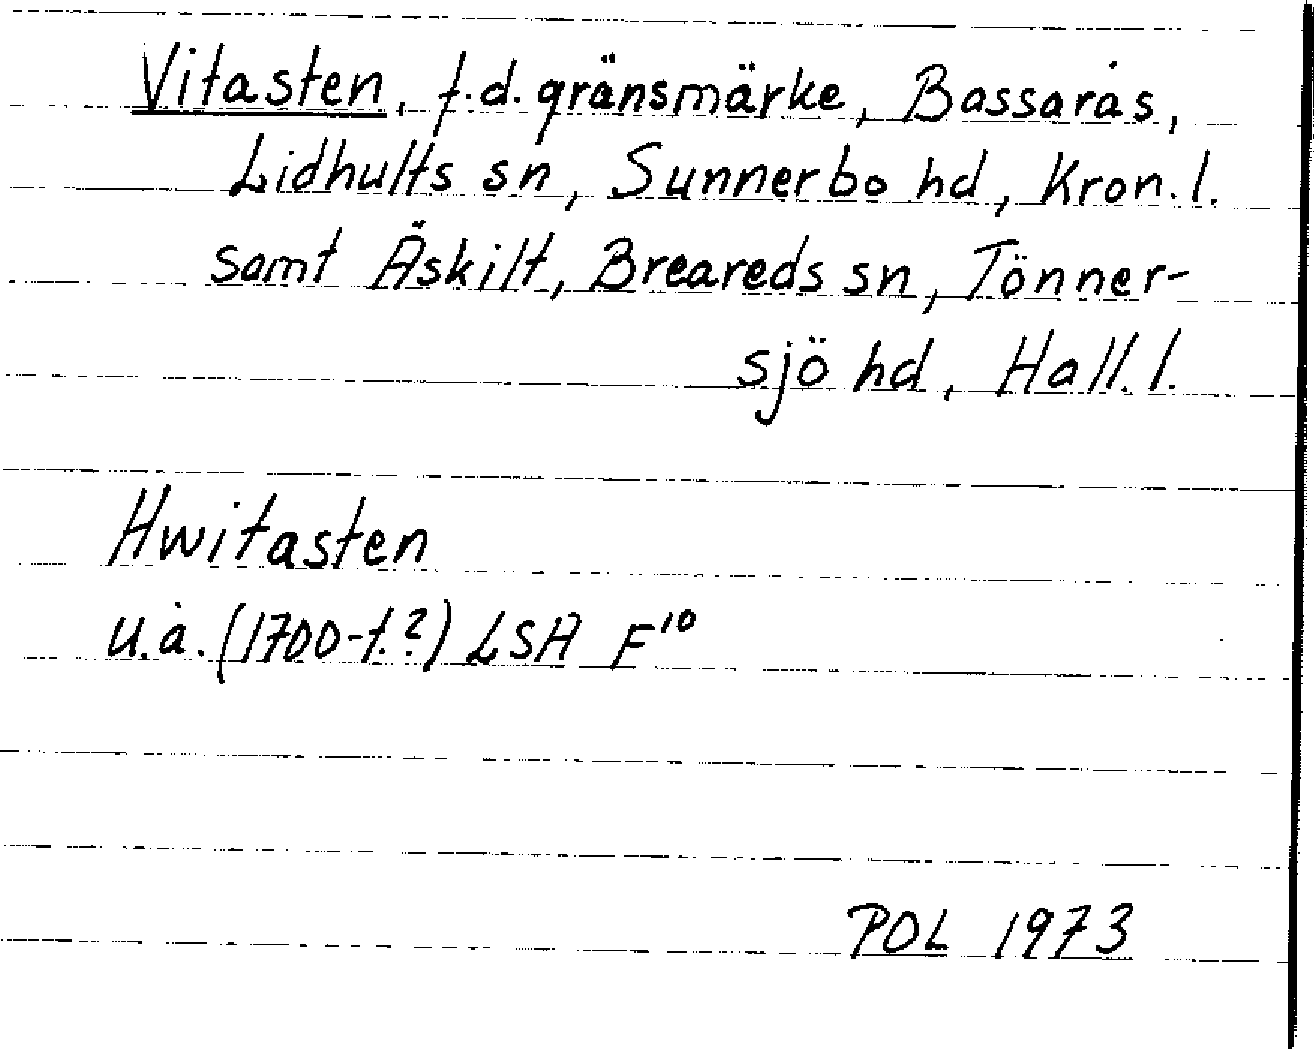 Vitasten, f.d. gränsmärke, Bassarås,
Lidhults sn, Sunnerbo hd, Kron. l.
samt Äskilt, Breareds sn, Tönner-
sjö hd, Hall. l.
Hwitasten
u.å. (1700-t.?) LSA F¹⁰
POL 1973